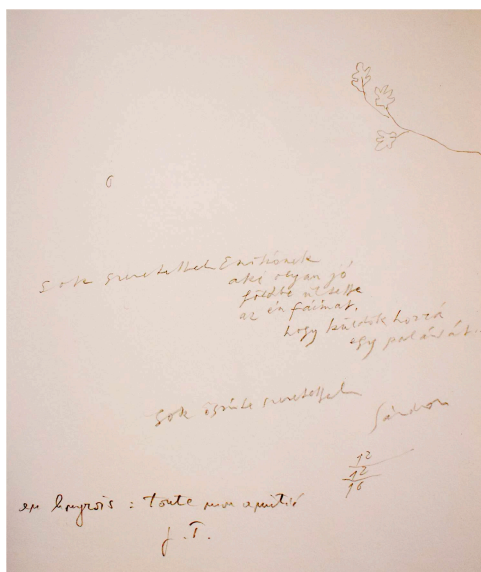 Sok szeretettel Enikőnek
aki olyan jó
földbe ültette
az én fáimat,
hogy küldök hozzá
egy palántát...
Sok őszinte szeretettel
Sándor
92
12
16
en hongrois : toute mon amitié
J. T.